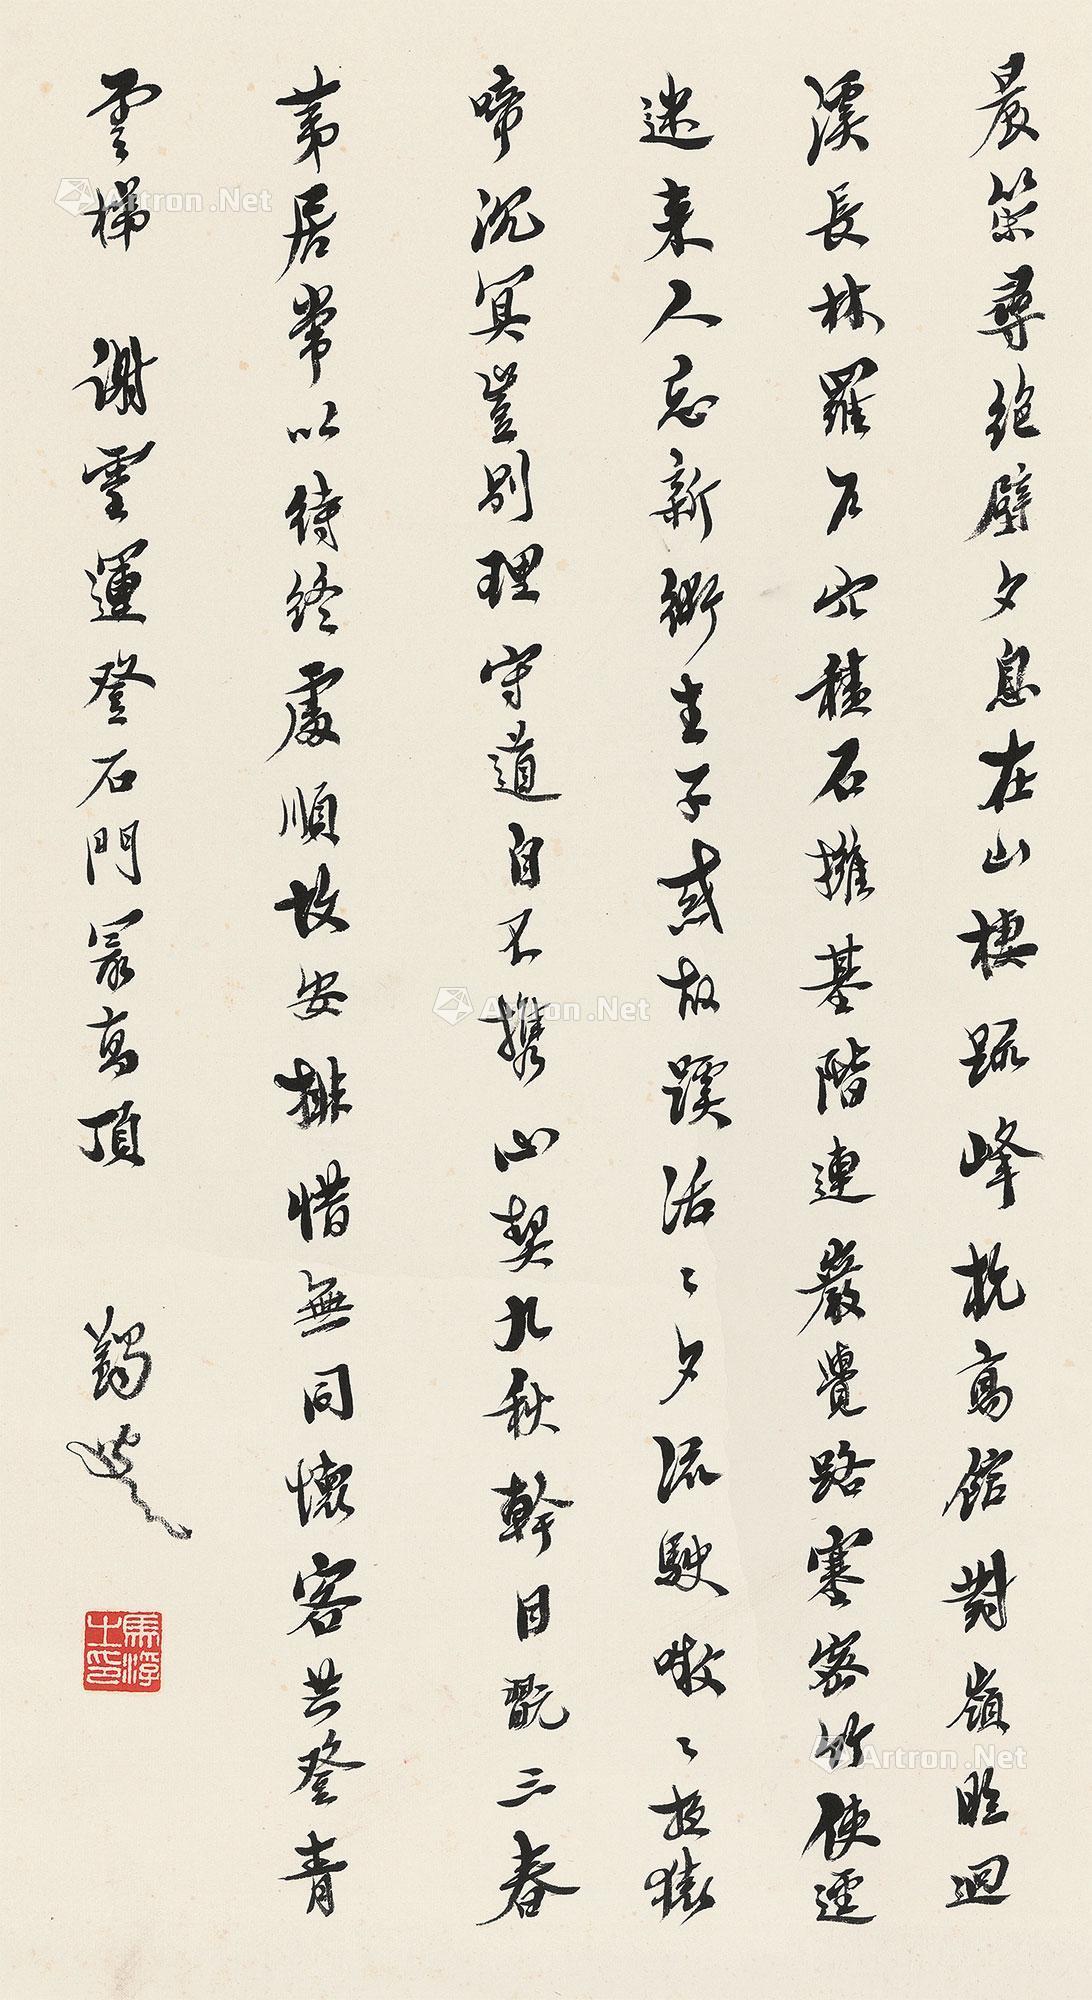 晨策尋絕壁夕息在山棲疏峰抗高館對嶺臨迴
溪長林羅戶穴積石擁基階連巖覺路塞密竹使逕
迷来人忘新術去子惑故蹊活〻夕流駛噭〻夜猿
啼沉冥豈別理守道自不攜心契九秋幹目翫三春
荑居常以待終處順故安排惜無同懷客共登青
雲梯 謝靈運登石門最高頂 蠲叟
馬浮之印
Artron.Net
Artron.Net
Artron.Net